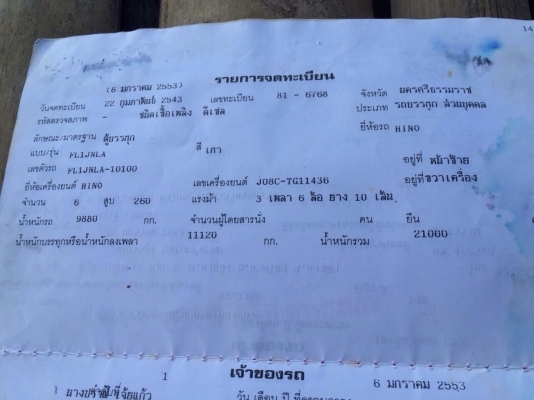 14
รายการจดทะเบียน
(6 มกราคม 2553)
วันจดทะเบียน 22 กุมภาพันธ์ 2543 เลขทะเบียน 81 - 6768 จังหวัด นครศรีธรรมราช
รหัสตรวจสภาพ - ชนิดเชื้อเพลิง ดีเซล ประเภท รถบรรทุก ส่วนบุคคล
ลักษณะ/มาตรฐาน ตู้บรรทุก ยี่ห้อรถ HINO
แบบ/รุ่น FL1JNLA สี เทา
เลขตัวรถ FL1JNLA-10100 อยู่ที่ หน้าซ้าย
ยี่ห้อเครื่องยนต์ HINO เลขเครื่องยนต์ J08C-TG11436 อยู่ที่ขวาเครื่อง
จำนวน 6 สูบ 260 แรงม้า 3 เพลา 6 ล้อ ยาง 10 เส้น
น้ำหนักรถ 9880 กก. จำนวนผู้โดยสารนั่ง คน ยืน
น้ำหนักบรรทุกหรือน้ำหนักลงเพลา 11120 กก. น้ำหนักรวม 21000
เจ้าของรถ
1 6 มกราคม 2553
วัน เดือน ปี ที่